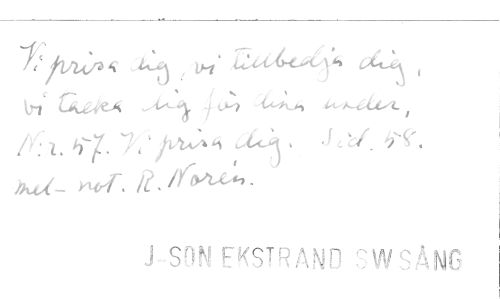 Vi prisa dig, vi tillbedja dig,
vi tacka dig för dina under,
N:r. 57. Vi prisa dig. Sid. 58.
mel- not. R. Norén.
J-SON EKSTRAND SW SÅNG